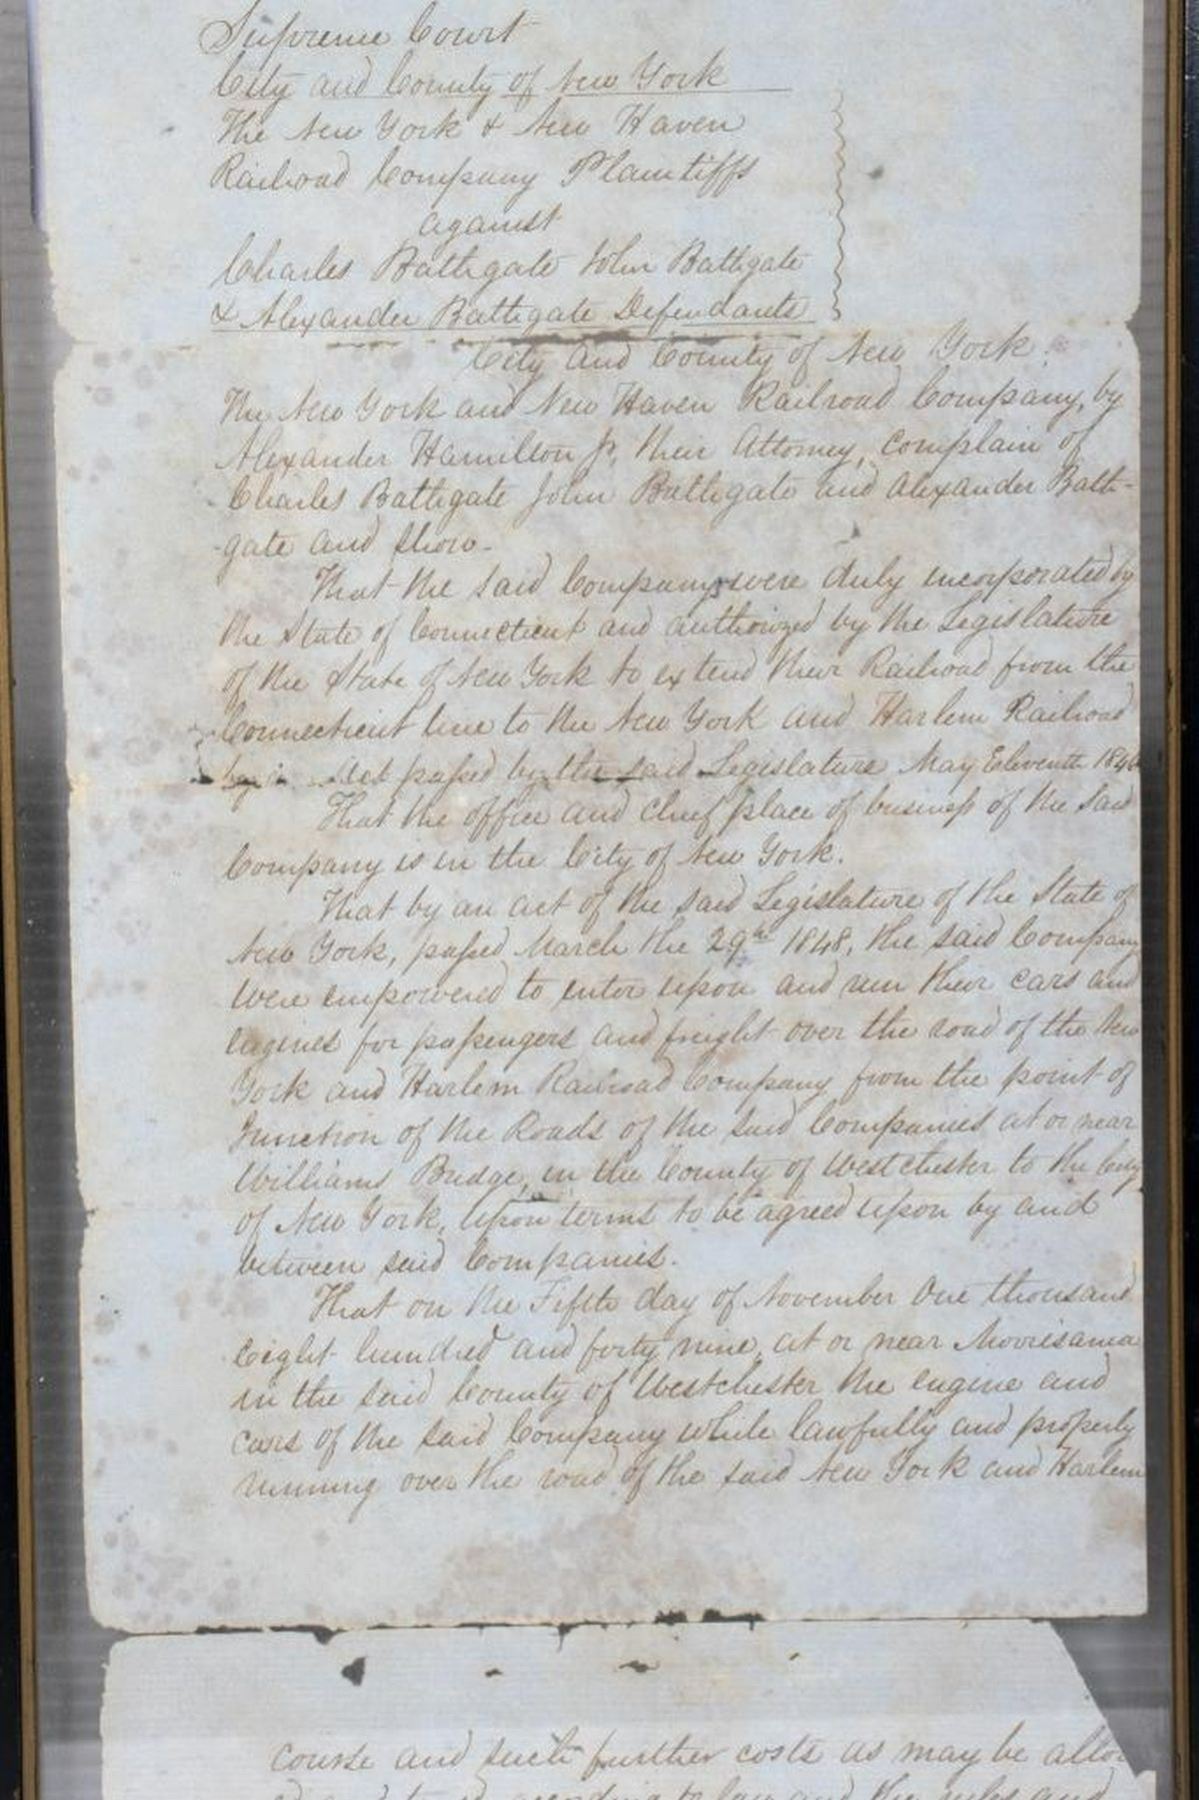 Supreme Court
City and County of New York
The New York & New Haven
Railroad Company Plaintiffs
against
Charles Bathgate John Bathgate
& Alexander Bathgate Defendants
City and County of New York.
The New York and New Haven Railroad Company, by
Alexander Hamilton Jr. their Attorney, complain of
Charles Bathgate John Bathgate and Alexander Bath-
-gate and show-
That the said Company were duly incorporated by
the State of Connecticut and authorized by the Legislature
of the State of New York to extend their Railroad from the
Connecticut line to the New York and Harlem Railroad
by Act passed by the said Legislature May Eleventh 1846
That the office and chief place of business of the said
Company is in the City of New York.
That by an act of the said Legislature of the State of
New York, passed March the 29th 1848, the said Company
were empowered to enter upon and run their cars and
engines for passengers and freight over the road of the New
York and Harlem Railroad Company from the point of
Junction of the Roads of the said Companies at or near
Williams Bridge, in the County of Westchester to the City
of New York, upon terms to be agreed upon by and
between said Companies.
That on the Fifth day of November One thousand
Eight hundred and forty nine, at or near Morrisania
in the said County of Westchester the engine and
cars of the said Company while lawfully and properly
running over the road of the said New York and Harlem
course and such further costs as may be allow
according to law and the rules and